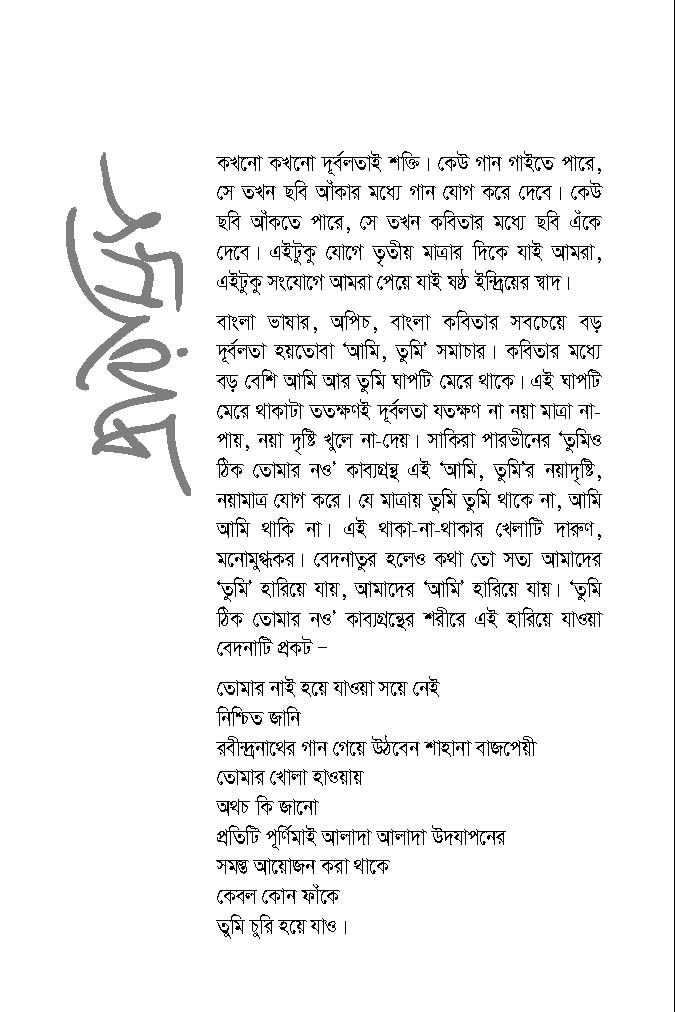 কখনো কখনো দূর্বলতাই শক্তি। কেউ গান গাইতে পারে,
সে তখন ছবি আঁকার মধ্যে গান যোগ করে দেবে। কেউ
ছবি আঁকতে পারে, সে তখন কবিতার মধ্যে ছবি এঁকে
দেবে। এইটুকু যোগে তৃতীয় মাত্রার দিকে যাই আমরা,
এইটুকু সংযোগে আমরা পেয়ে যাই ষষ্ঠ ইন্দ্রিয়ের স্বাদ।
বাংলা ভাষার, অপিচ, বাংলা কবিতার সবচেয়ে বড়
দূর্বলতা হয়তোবা ‘আমি, তুমি’ সমাচার। কবিতার মধ্যে
বড় বেশি আমি আর তুমি ঘাপটি মেরে থাকে। এই ঘাপটি
মেরে থাকাটা ততক্ষণই দূর্বলতা যতক্ষণ না নয়া মাত্রা না-
পায়, নয়া দৃষ্টি খুলে না-দেয়। সাকিরা পারভীনের ‘তুমিও
ঠিক তোমার নও’ কাব্যগ্রন্থ এই ‘আমি, তুমি’র নয়াদৃষ্টি,
নয়ামাত্র যোগ করে। যে মাত্রায় তুমি তুমি থাকে না, আমি
আমি থাকি না। এই থাকা-না-থাকার খেলাটি দারুণ,
মনোমুগ্ধকর। বেদনাতুর হলেও কথা তো সত্য আমাদের
‘তুমি’ হারিয়ে যায়, আমাদের ‘আমি’ হারিয়ে যায়। ‘তুমি
ঠিক তোমার নও’ কাব্যগ্রন্থের শরীরে এই হারিয়ে যাওয়া
বেদনাটি প্রকট –
তোমার নাই হয়ে যাওয়া সয়ে নেই
নিশ্চিত জানি
রবীন্দ্রনাথের গান গেয়ে উঠবেন শাহানা বাজপেয়ী
তোমার খোলা হাওয়ায়
অথচ কি জানো
প্রতিটি পূর্ণিমাই আলাদা আলাদা উদযাপনের
সমস্ত আয়োজন করা থাকে
কেবল কোন ফাঁকে
তুমি চুরি হয়ে যাও।